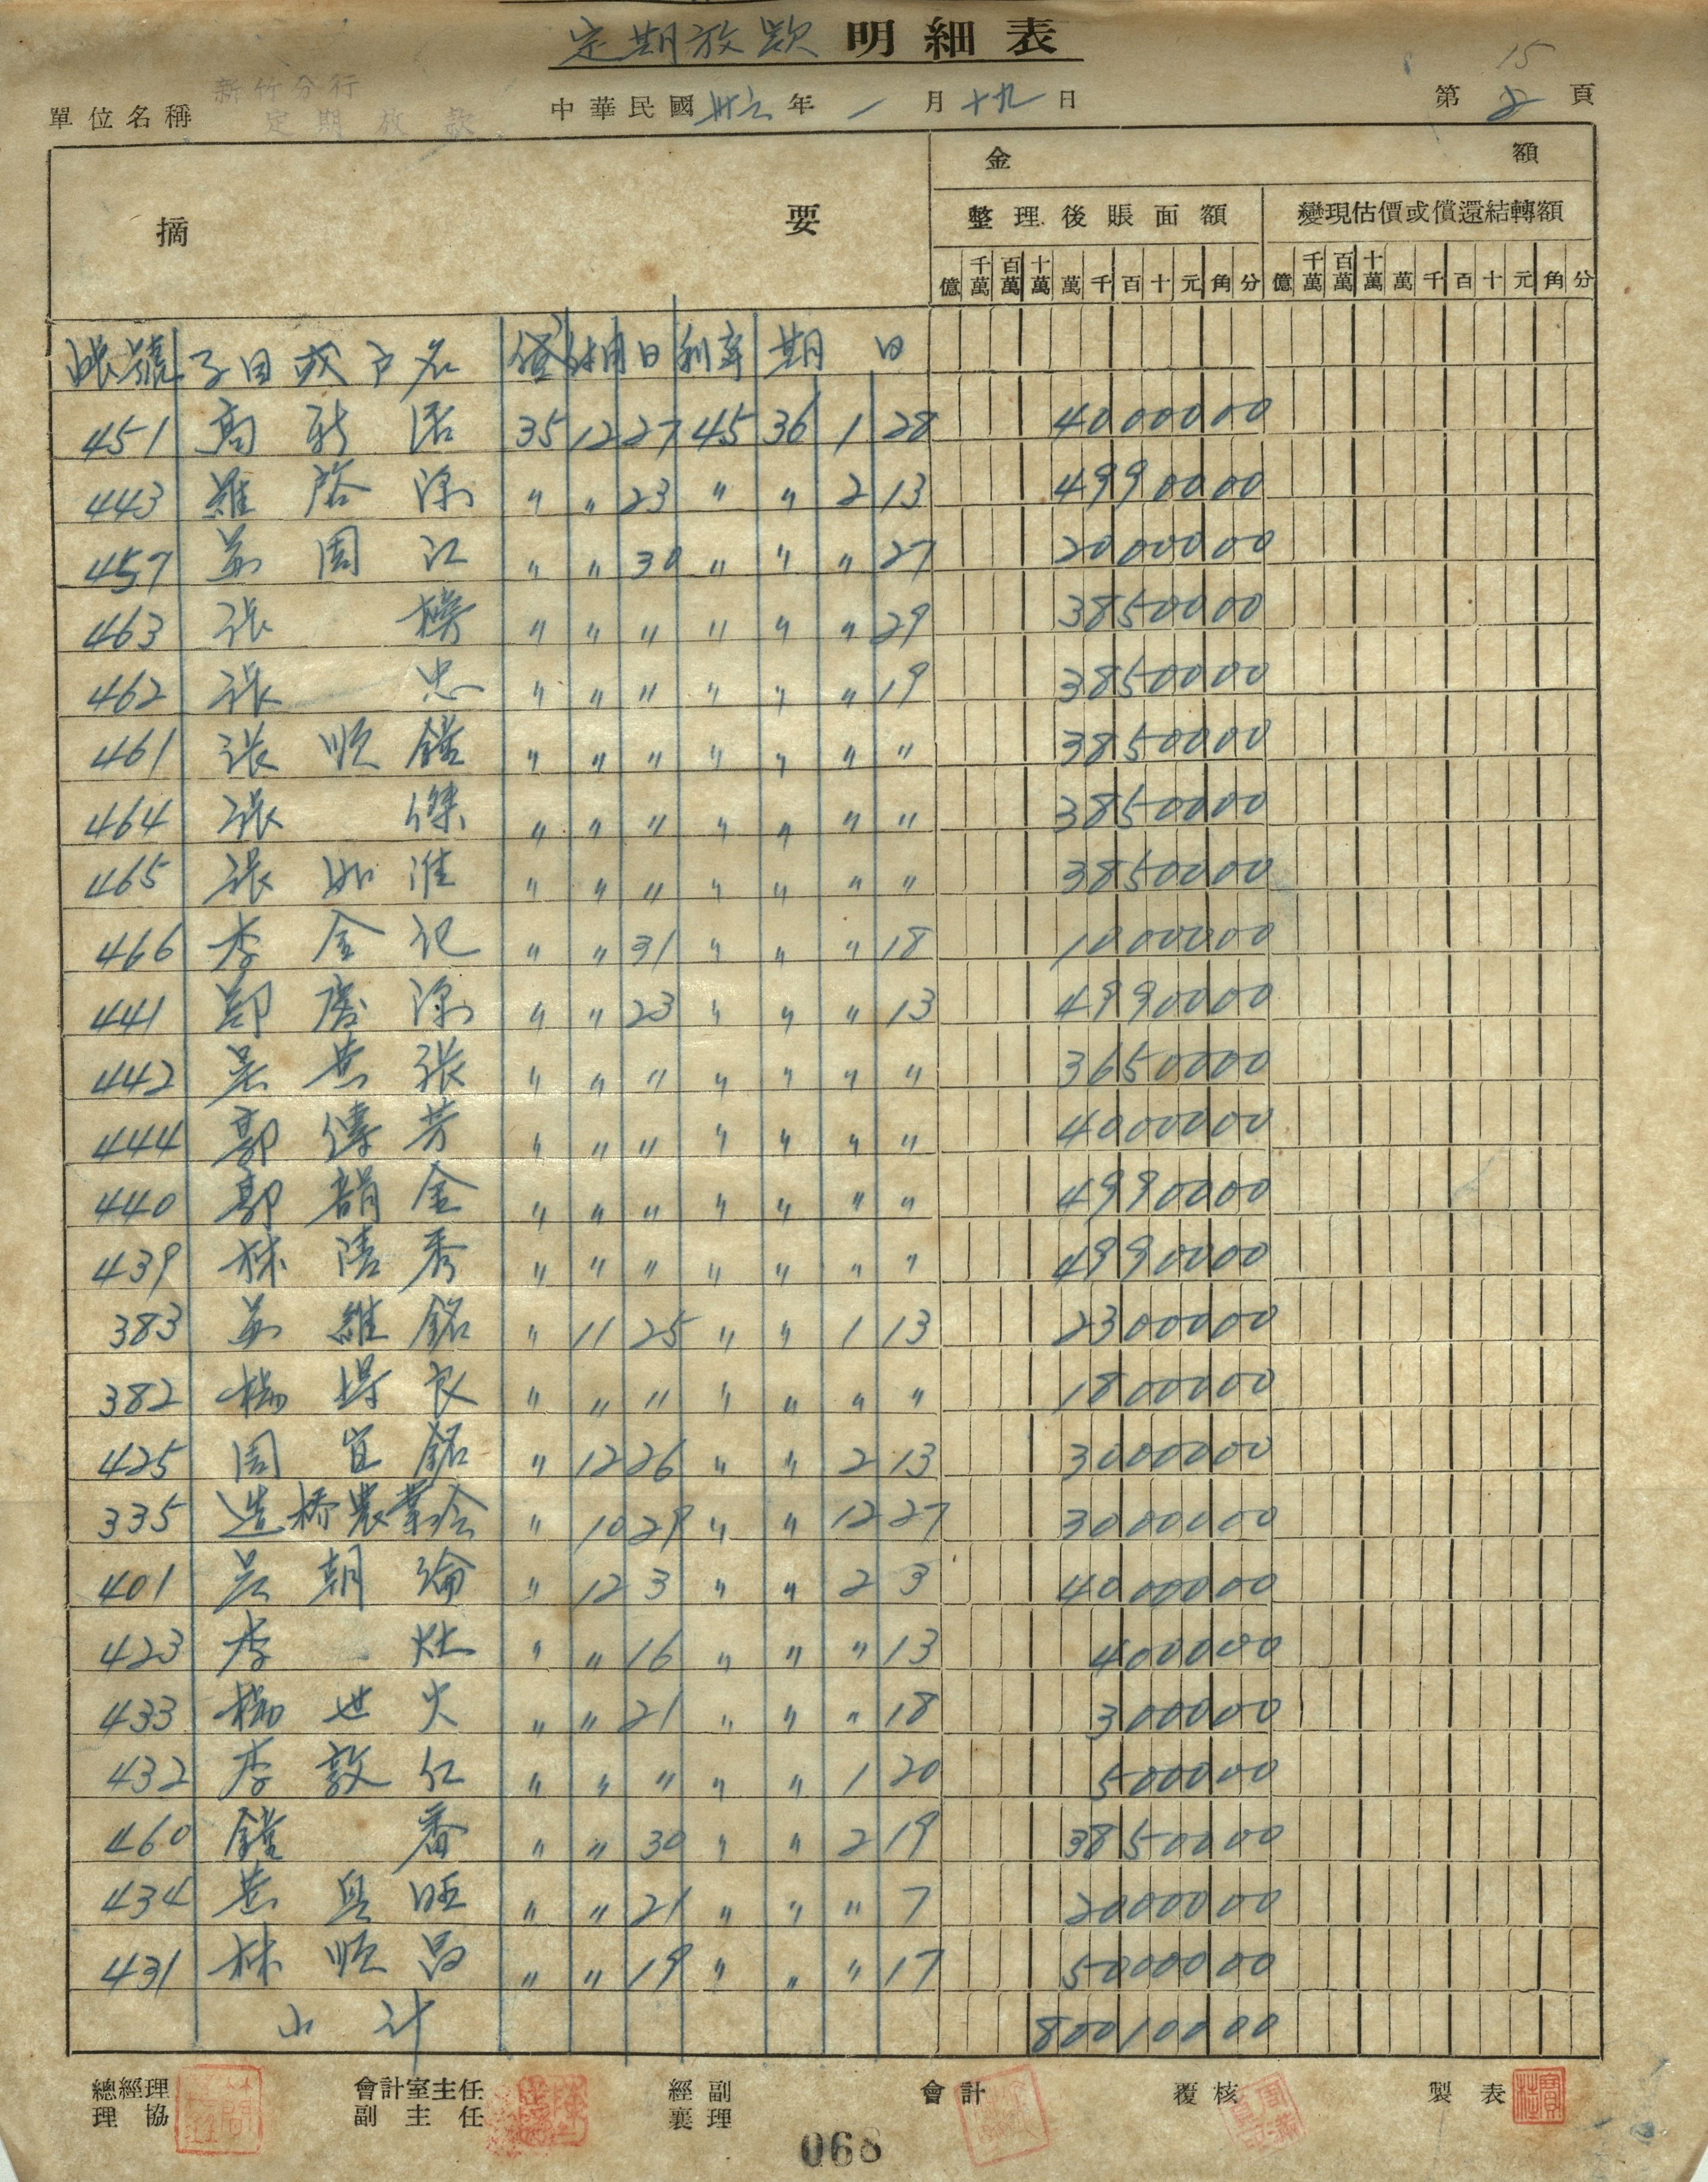 定期放款 明細表
15
新竹分行
單位名稱 定期放款 中華民國卅六年一月十九日 第2頁
摘要 金額
整理後賬面額 變現估價或償還結轉額
億 千萬 百萬 十萬 萬 千 百 十 元 角 分 億 千萬 百萬 十萬 萬 千 百 十 元 角 分
帳號 子目或戶名 日 利率 期日
451 高新 35 12 27 45 36 1 28 4000000
443 羅啓 〃 〃 23 〃 〃 2 13 4990000
457 蘇周江 〃 〃 30 〃 〃 〃 27 2000000
463 張 〃 〃 〃 〃 〃 〃 29 3850000
462 張忠 〃 〃 〃 〃 〃 〃 19 3850000
461 張順 〃 〃 〃 〃 〃 〃 〃 3850000
464 張傑 〃 〃 〃 〃 〃 〃 〃 3850000
465 張如淮 〃 〃 〃 〃 〃 〃 〃 3850000
466 李金記 〃 〃 31 〃 〃 〃 18 1000000
441 〃 〃 23 〃 〃 〃 13 4990000
442 吳黃張 〃 〃 〃 〃 〃 〃 〃 3650000
444 郭傳芳 〃 〃 〃 〃 〃 〃 〃 4000000
440 郭韻金 〃 〃 〃 〃 〃 〃 〃 4990000
439 林清秀 〃 〃 〃 〃 〃 〃 〃 4990000
383 蘇維銘 〃 11 25 〃 〃 1 13 2300000
382 楊得良 〃 〃 〃 〃 〃 〃 〃 1800000
425 周宜銘 〃 12 26 〃 〃 2 13 3000000
335 造橋農業会 〃 10 29 〃 〃 12 27 3000000
401 吳朝綸 〃 12 3 〃 〃 2 3 4000000
423 李灶 〃 〃 16 〃 〃 〃 13 400000
433 楊世火 〃 〃 21 〃 〃 〃 18 300000
432 李敦仁 〃 〃 〃 〃 〃 1 20 500000
460 番 〃 〃 30 〃 〃 2 19 3850000
434 黃旺 〃 〃 21 〃 〃 〃 7 2000000
431 林順昌 〃 〃 19 〃 〃 〃 17 5000000
小計 80010000
總經理 會計室主任 經副 會計 覆核 製表
理協 副主任 襄理
068